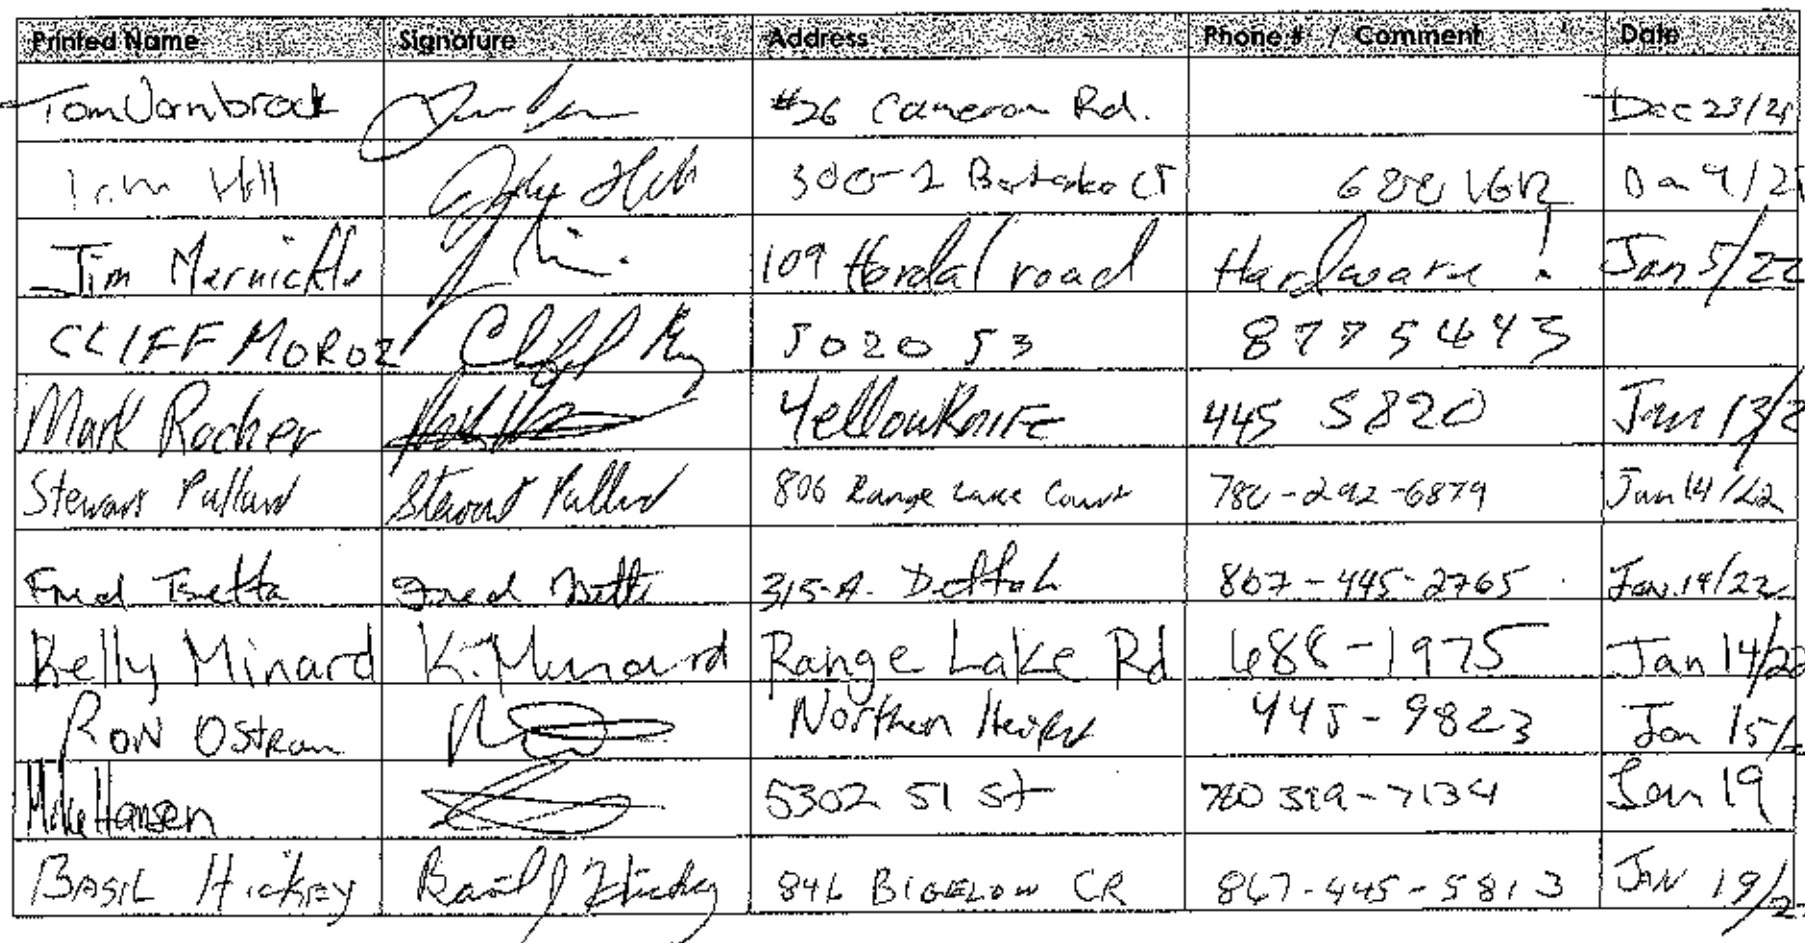 Printed Name Signature Address Phone # / Comment Date
Tom Vornbrock #26 Cameron Rd. Dec 23/21
Hill 300-2 Ct
Jim Mernickle 109 Hordal road Hardware! Jan 5/22
CLIFF MOROZ 5020 53 8775443
Mark Rocher Yellowknife 445 5820 Jan 13/2
Stewart Pallard Stewart Pallard 806 Range Lake Court 780-292-6879 Jan 14/22
Fred Tsetta Fred Tsetta 315-A. Dettah 867-445-2765 Jan. 14/22
Kelly Minard K. Minard Range Lake Rd 688-1975 Jan 14/22
RON Ostrom Northern Heights 445-9823 Jan 15/
Mike Hansen 5302 51 St 780 -7134 Jan 19
BASIL Hickey Basil J Hickey 846 BIGELOW CR 867-445-5813 JAN 19/2